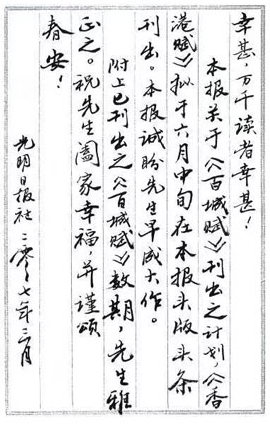 幸甚，万千读者幸甚！
本报关于《百城赋》刊出之计划，《香
港赋》拟于六月中旬在本报头版头条
刊出。本报诚盼先生早成大作。
附上已刊出之《百城赋》数期，先生雅
正之。祝先生阖家幸福，并谨颂
春安！
光明日报社 二〇〇七年三月